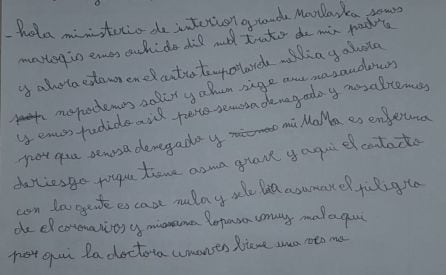 - hola ministerio de interior grande Marlaska somos
maroqis emos ouhido dil mal trato de mi padre
y ahora estamos en el centro temporal de mellia y ahora
nopodemos salir y ahun sige aun nosaudenus
y emos pedido asil pero senosa denegado y nosabremos
por que senosa denegado y mi MaMa es enferma
de riesgo porque tiene asma grave y aqui el contacto
con la gente es case nula y sele asumar el piligro
de el coronavirus y mi mama lopasa umuy mal aqui
por qui la doctora umaves biene una ves no